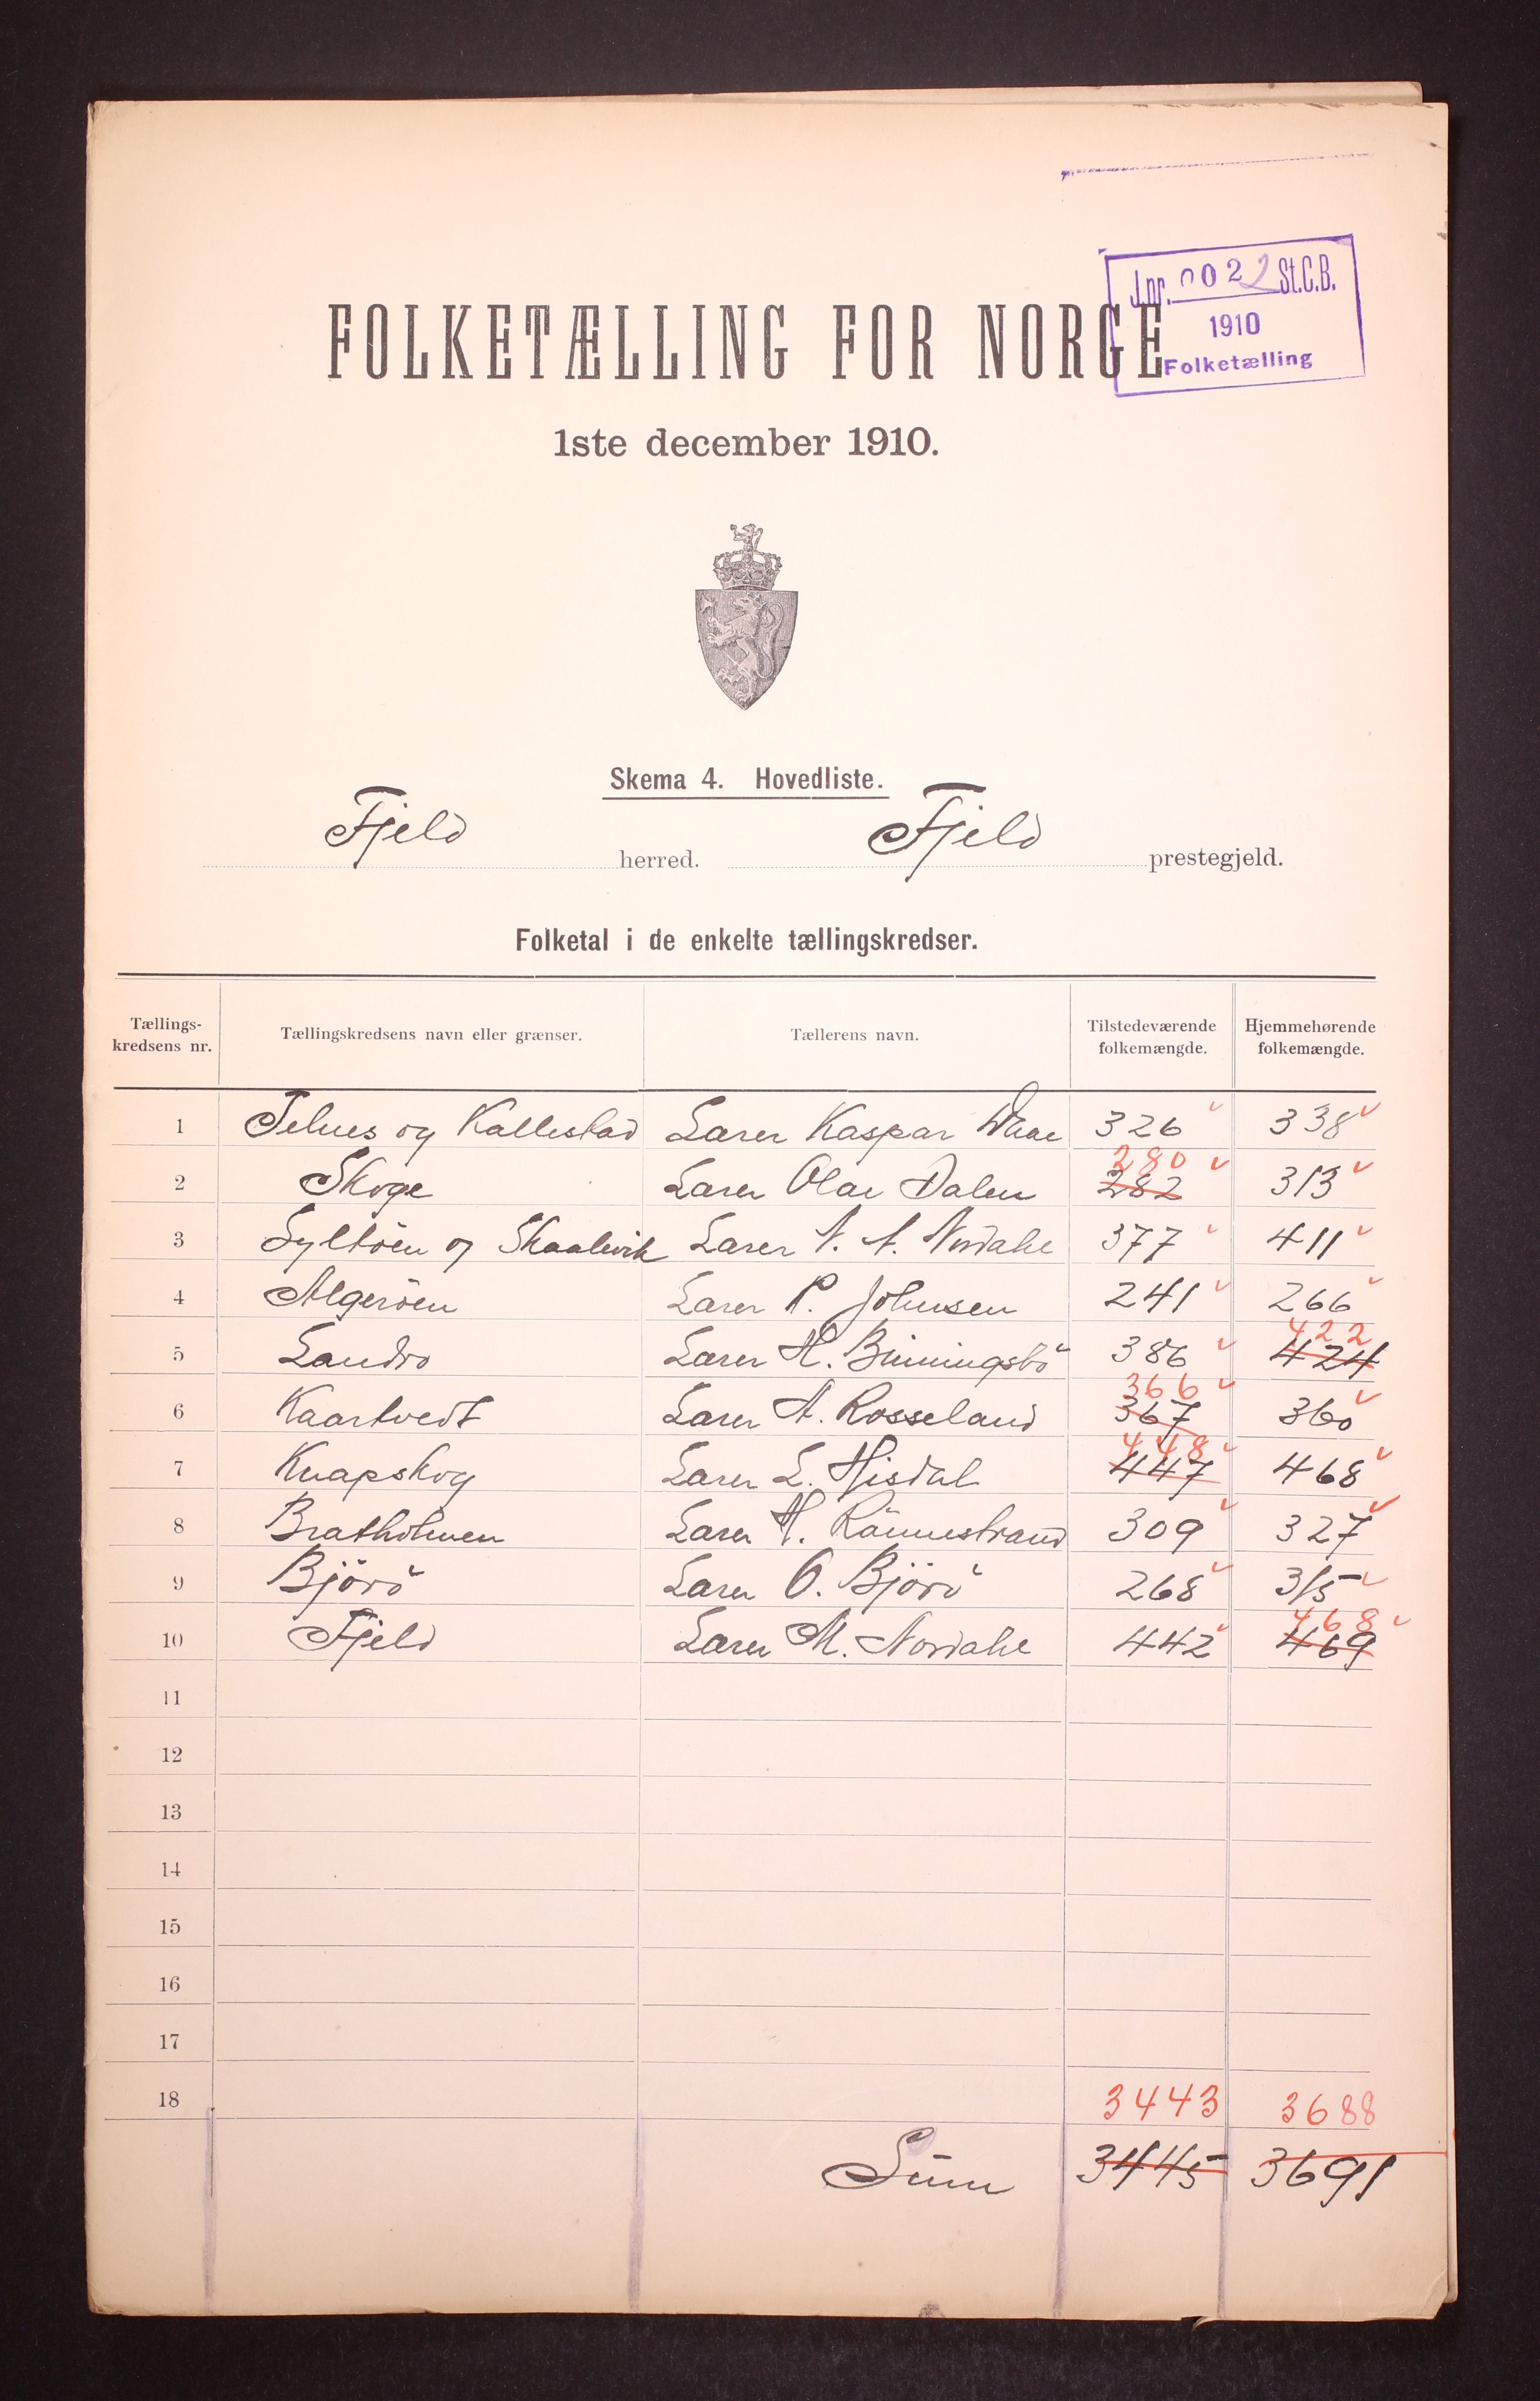 J.nr. 0022 St.C.B.
1910
Folketælling
FOLKETÆLLING FOR NORGE
1ste december 1910.
Skema 4. Hovedliste.
Fjeld herred. Fjeld prestegjeld.
Folketal i de enkelte tællingskredser.
Tællings-kredsens nr. Tællingskredsens navn eller grænser. Tællerens navn. Tilstedeværende folkemængde. Hjemmehørende folkemængde.
1 Telnes og Kallestad Lærer Kaspar 326 338
280
2 Skoge Lærer Olai Dalen 282 313
3 Syltöen og Skaalevik Lærer A. A. Nordahl 377 411
4 Algeröen Lærer P. Johnsen 241 266
422
5 Landro Lærer H. Binningsbö 386 424
366
6 Kaartvedt Lærer A. Rosseland 367 360
448
7 Knapskog Lærer L. Hisdal 447 468
8 Bratholmen Lærer H. Rönnestrand 309 327
9 Björö Lærer O. Björö 268 315
468
10 Fjeld Lærer M. Nordahl 442 469
11
12
13
14
15
16
17
18 3443 3688
Sum 3445 3691